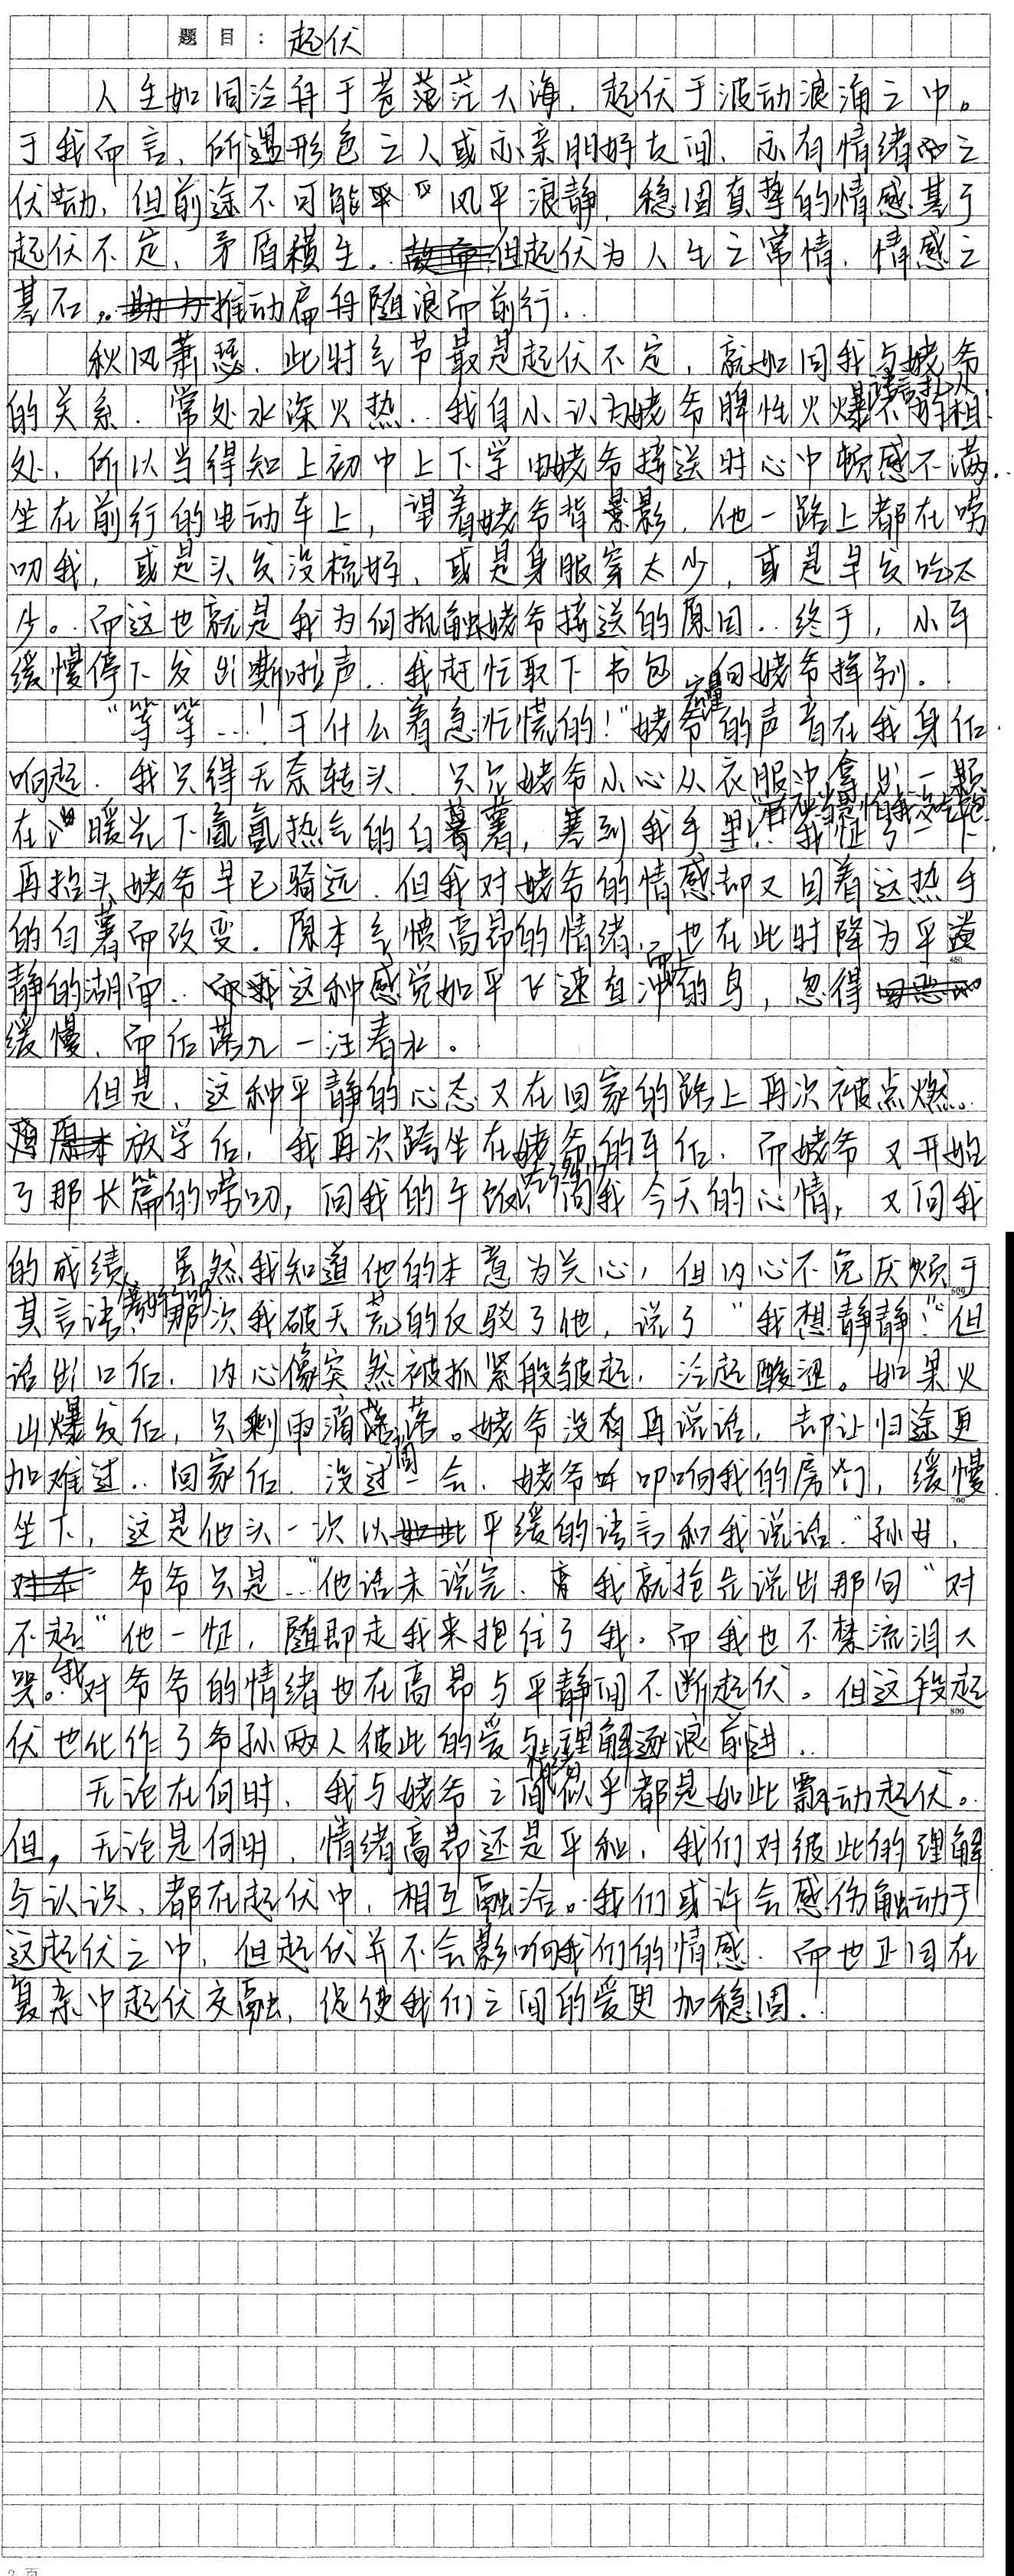 题目：起伏
人生如同泛舟于苍茫茫大海，起伏于波动浪涌之中。
于我而言，所遇形色之人或亦亲朋好友间，亦有情绪之
伏动，但前途不可能平风平浪静，稳固真挚的情感基于
起伏不定，矛盾横生。但起伏为人生之常情，情感之
基石。推动扁舟随浪而前行。
秋风萧瑟，此时气节最是起伏不定，就如同我与姥爷
的关系，常处水深火热。我自小认为姥爷脾性火爆不好相
处，所以当得知上初中上下学由姥爷接送时心中顿感不满。
坐在前行的电动车上，望着姥爷背影，他一路上都在唠
叨我，或是头发没梳好，或是身服穿太少，或是早饭吃太
少。而这也就是我为何抵触姥爷接送的原因。终于，小车
缓慢停下发出嘶啦声。我赶忙取下书包，向姥爷挥别。
“等等…！干什么着急忙慌的！”姥爷的声音在我身后
响起。我只得无奈转头，只见姥爷小心从衣服中拿出一颗
在暖光下氤氲热气的白薯，塞到我手里。我怔了一下，
再抬头姥爷早已骑远。但我对姥爷的情感却又因着这热乎
的白薯而改变。原本气愤高昂的情绪，也在此时降为平
静的湖面。这种感觉如平飞速直冲的鸟，忽得
缓慢，而后落入一汪春水。
但是，这种平静的心态又在回家的路上再次被点燃。
放学后，我再次跨坐在姥爷的车后，而姥爷又开始
了那长篇的唠叨，问我的午饭，问我今天的心情，又问我
的成绩，虽然我知道他的本意为关心，但内心不免厌烦于
其言语。那次我破天荒的反驳了他，说了“我想静静！”但
话出口后，内心像突然被抓紧般皱起，泛起酸涩。如果火
山爆发后，只剩雨滴落。姥爷没有再说话，却让归途更
加难过。回家后，没过一会，姥爷叩响我的房门，缓慢
坐下，这是他头一次以平缓的语言和我说话。“孙女，
爷爷只是…”他话未说完，我就抢先说出那句“对
不起”他一怔，随即走我来抱住了我。而我也不禁流泪大
哭。我对爷爷的情绪也在高昂与平静间不断起伏。但这段起
伏也化作了爷孙两人彼此的爱与理解逐浪前进。
无论在何时，我与姥爷之间情绪似乎都是如此飘动起伏。
但，无论是何时，情绪高昂还是平和，我们对彼此的理解
与认识，都在起伏中，相互融洽。我们或许会感伤触动于
这起伏之中，但起伏并不会影响我们的情感，而也正因在
复杂中起伏交融，促使我们之间的爱更加稳固。